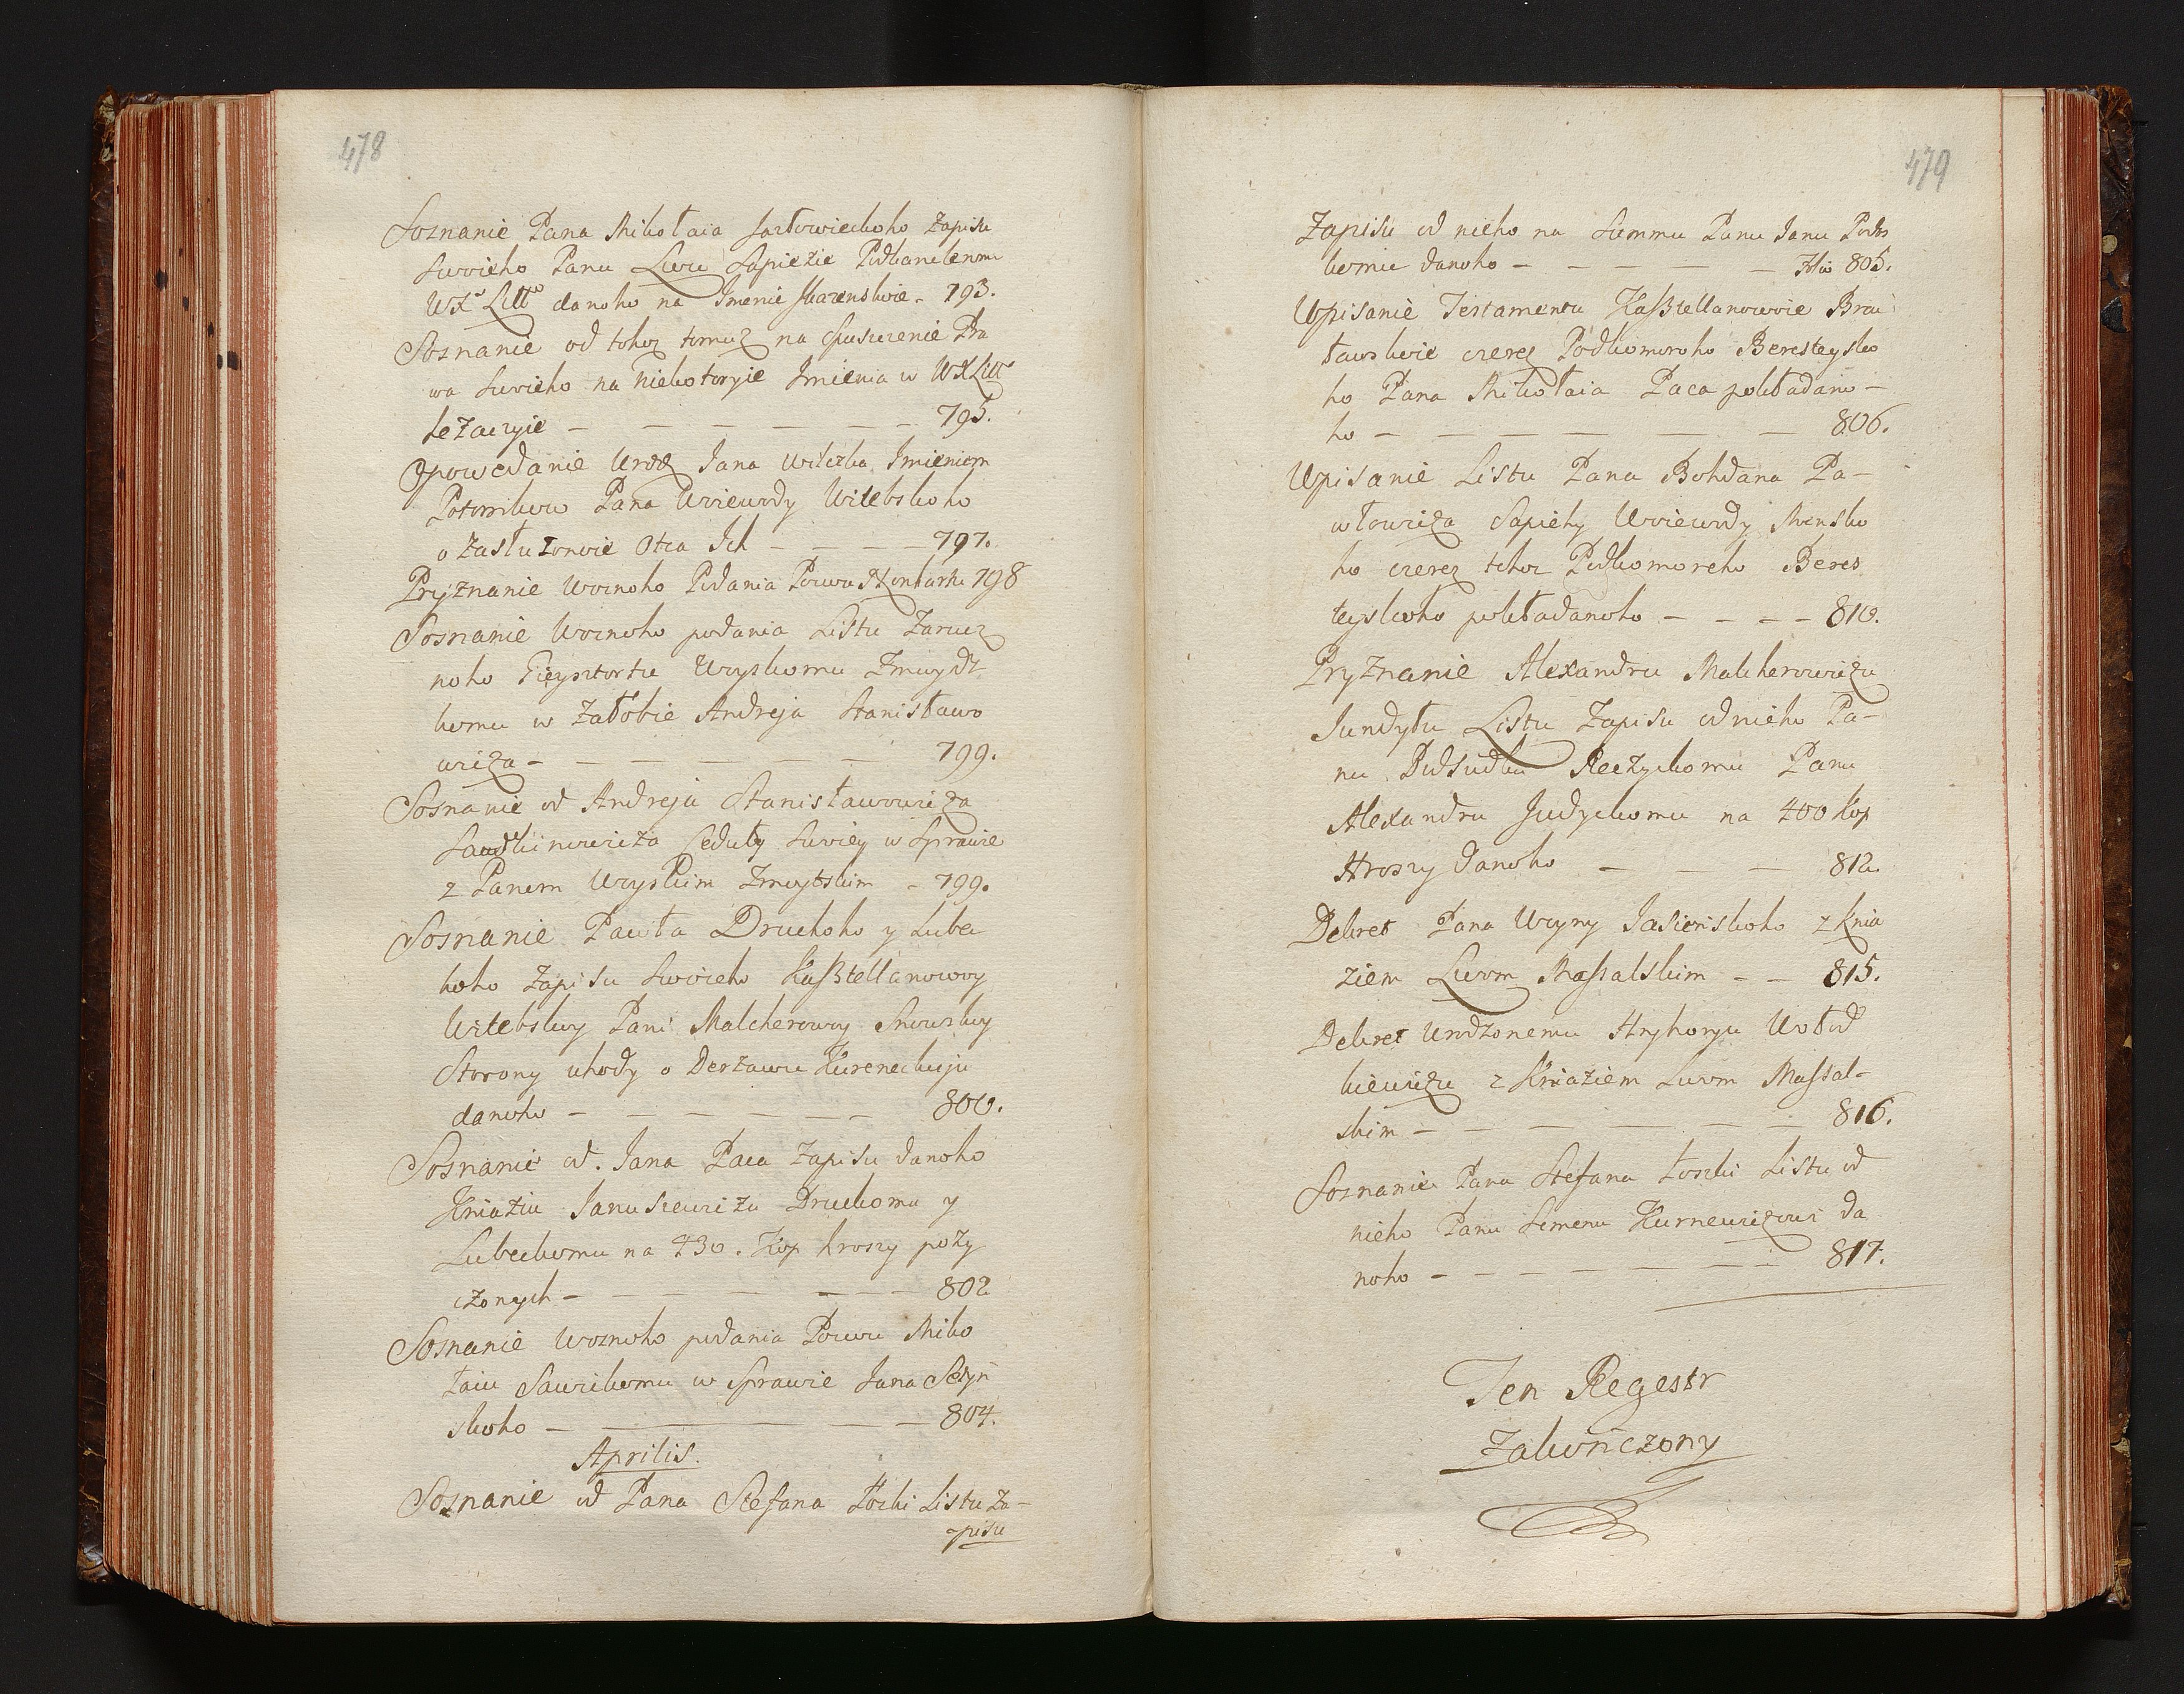 478
Soznanie Pana Mikołaia Jazłowieckoho Zapisu
Swoieho Panu Lwu Sapiezie Podkanclemu
WXa Litto danoho na Imenie - 793.
Soznanie od tohoz tomuz na Spuszczenie Pra
wa Swoieho na Niekotoryie Imienia w WXLitt
leżaczyie - - - - - - 795.
Opowedanie Urodz Jana Imieniem
Potomkow Pana Woiewody Witebskoho
o Zasłużonoie Otca Ich - - - - 797.
Pryznanie Woznoho Podania Pozwu 798
Soznanie Woznoho podania Listu Zarucz
noho Gieysztortu Wzyskomu Zmuydz
komu w Załobie Andreja Stanisławo
wicza - - - - - - 799.
Soznanie od Andreja Stanisławowicza
Ceduły Swoiey w Sprawie
z Panem Wzyskim Zmuytskim - 799.
Soznanie Pawła Druckoho y Lubec
koho Zapisu Swoieho Kaßtellanowoy
Witebskoy Pani Malcherowoy Snowskoy
Storony uhody o Derżawu Kureneckuju
danoho - - - - - - - 800.
Soznanie od. Jana Paca Zapisu danoho
Kniaziu Januszewiczu Druckomu y
Lubeckomu na 430. Kop hroszy poży
czonych - - - - - - - 802
Soznanie Woznoho podania Pozwu Miko
łaiu Sawickomu w Sprawie Jana
skoho - - - - 804.
Aprilis.
Soznanie od Pana Stefana Łozki Listu Za-
pisu
479
Zapisu od nieho na Summu Panu Janu Pods
komu danoho - - - - - - Folio 805.
Wpisanie Testamentu Kaßtellanowoie Brac
ławskoie czerez Podkomoroho Beresteysko
ho Pana Mikołaia Paca pokładano -
ho - - - - - - 806.
Wpisanie Listu Pana Bohdana Pa-
włowicza Sapiehy Woiewody Minsko
ho czerez tohoz Podkomoroho Beres
teyskoho pokładanoho - - - - 810.
Pryznanie Alexandru Malcherowiczu
Jundyłu Listu Zapisu od nieho Pa-
nu Podsudku Reczyckomu Panu
Alexandru Judyckomu na 400 Kop
Hroszy danoho - - - 812.
Dekret Pana Wzyny Jasienskoho z Knia
ziem Lwom Massalskim - - 815.
Dekret Urodzonemu Hryhoryu Wołod
kiewiczu z Kniaziem Lwom Massal-
skim - - - - - - 816.
Soznanie Pana Stefana Łozki Listu od
nieho Panu Semenu Kurnewiczowi da
noho - - - - - - - 817.
Ten Regestr
Zakończony